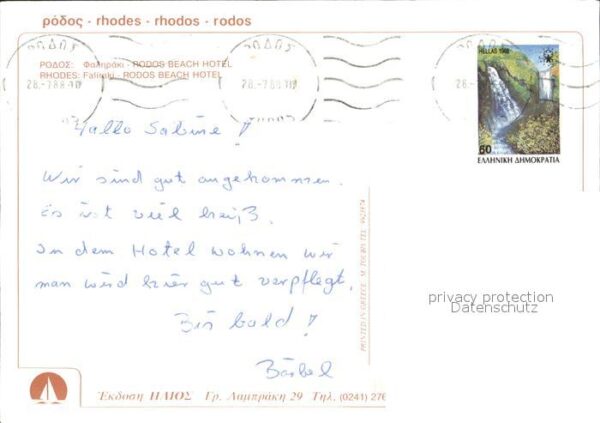 ρόδος - rhodes - rhodos - rodos
ΡΟΔΟΣ: Φαληράκι - RODOS BEACH HOTEL
RHODES: Faliraki - RODOS BEACH HOTEL
HELLAS 1988
60
ΕΛΛΗΝΙΚΗ ΔΗΜΟΚΡΑΤΙΑ
ΡΟΔΟΣ
28.-7.88
Hallo Sabine!
Wir sind gut angekommen.
Es ist viel heiß.
In dem Hotel wohnen wir
man wird hier gut verpflegt.
Bis bald!
Bärbel
PRINTED IN GREECE
privacy protection
Datenschutz
Έκδοση ΗΛΙΟΣ Γρ. Λαμπράκη 29 Τηλ. (0241) 276